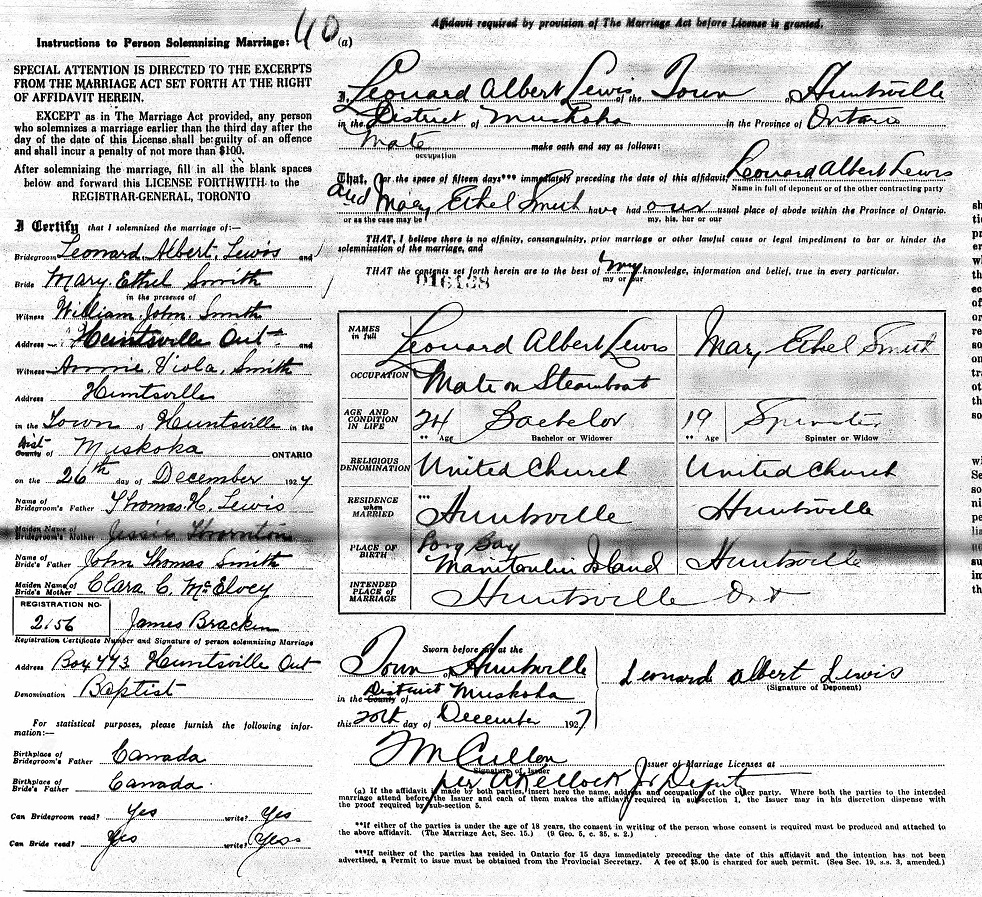 40
Instructions to Person Solemnizing Marriage:
SPECIAL ATTENTION IS DIRECTED TO THE EXCERPTS
FROM THE MARRIAGE ACT SET FORTH AT THE RIGHT
OF AFFIDAVIT HEREIN.
EXCEPT as in The Marriage Act provided, any person
who solemnizes a marriage earlier than the third day after the
day of the date of this License shall be guilty of an offence
and shall incur a penalty of not more than $100.
After solemnizing the marriage, fill in all the blank spaces
below and forward this LICENSE FORTHWITH to the
REGISTRAR-GENERAL, TORONTO
I Certify that I solemnized the marriage of:—
Bridegroom Leonard Albert Lewis and
Bride Mary Ethel Smith
in the presence of
Witness William John Smith
Address Huntsville Ont and
Witness Annie Viola Smith
Address Huntsville
in the Town of Huntsville in the
Dist County of Muskoka ONTARIO
on the 26th day of December 1927
Name of Bridegroom's Father Thomas H. Lewis
Maiden Name of Bridegroom's Mother Jessie Thornton
Name of Bride's Father John Thomas Smith
Maiden Name of Bride's Mother Clara C. McElvey
REGISTRATION NO.
2156 James Bracken
Registration Certificate Number and Signature of person solemnizing Marriage
Address Box 443 Huntsville Ont
Denomination Baptist
For statistical purposes, please furnish the following infor-
mation:—
Birthplace of Bridegroom's Father Canada
Birthplace of Bride's Father Canada
Can Bridegroom read? Yes write? Yes
Can Bride read? Yes write? Yess
Affidavit required by provision of The Marriage Act before License is granted.
(a)
I, Leonard Albert Lewis of the Town of Huntsville
in the District of Muskoka in the Province of Ontario
Mate make oath and say as follows:
occupation
That, for the space of fifteen days*** immediately preceding the date of this affidavit, Leonard Albert Lewis
Name in full of deponent or of the other contracting party
and Mary Ethel Smith have had our usual place of abode within the Province of Ontario.
or as the case may be my, his, her or our
THAT, I believe there is no affinity, consanguinity, prior marriage or other lawful cause or legal impediment to bar or hinder the
solemnization of the marriage, and
THAT the contents set forth herein are to the best of my knowledge, information and belief, true in every particular.
my or our
016128
NAMES in full Leonard Albert Lewis Mary Ethel Smith
OCCUPATION Mate on Steamboat
AGE AND CONDITION IN LIFE 24 Bachelor 19 Spinster
** Age Bachelor or Widower ** Age Spinster or Widow
RELIGIOUS DENOMINATION United Church United Church
RESIDENCE when MARRIED *** Huntsville Huntsville
PLACE OF BIRTH Bay Manitoulin Island Huntsville
INTENDED PLACE OF MARRIAGE Huntsville Ont
Sworn before me at the
Town of Huntsville
in the County of District Muskoka
this 20th day of December 1927
Leonard Albert Lewis
(Signature of Deponent)
Issuer of Marriage Licenses at
Signature of Issuer
per Jr Deputy
(a) If the affidavit is made by both parties, insert here the name, address and occupation of the other party. Where both the parties to the intended
marriage attend before the Issuer and each of them makes the affidavit required in sub-section 1, the Issuer may in his discretion dispense with
the proof required by sub-section 5.
**If either of the parties is under the age of 18 years, the consent in writing of the person whose consent is required must be produced and attached to
the above affidavit. (The Marriage Act, Sec. 15.) (9 Geo. 5, c. 35, s. 2.)
***If neither of the parties has resided in Ontario for 15 days immediately preceding the date of this affidavit and the intention has not been
advertised, a Permit to issue must be obtained from the Provincial Secretary. A fee of $5.00 is charged for such permit. (See Sec. 19, s.s. 3, amended.)